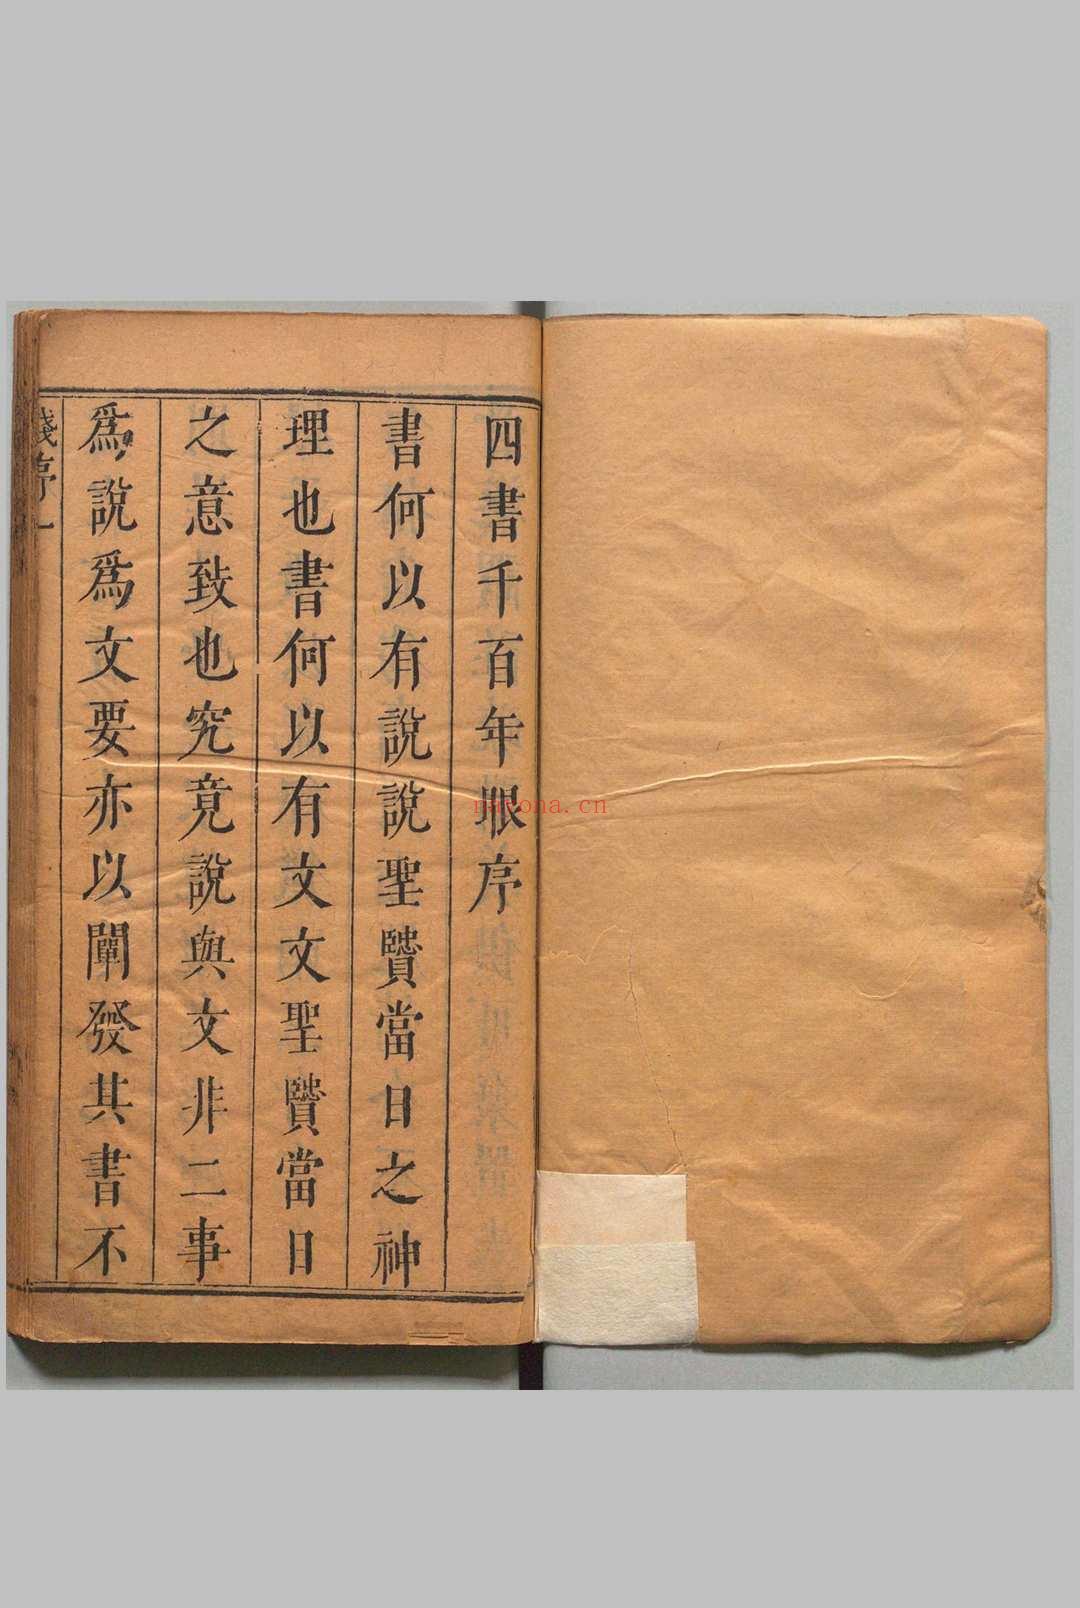 四書千百年眼序
書何以有說說聖賢當日之神
理也書何以有文文聖賢當日
之意致也究竟說與文非二事
爲說爲文要亦以闡發其書不
錢序一
nayona.cn